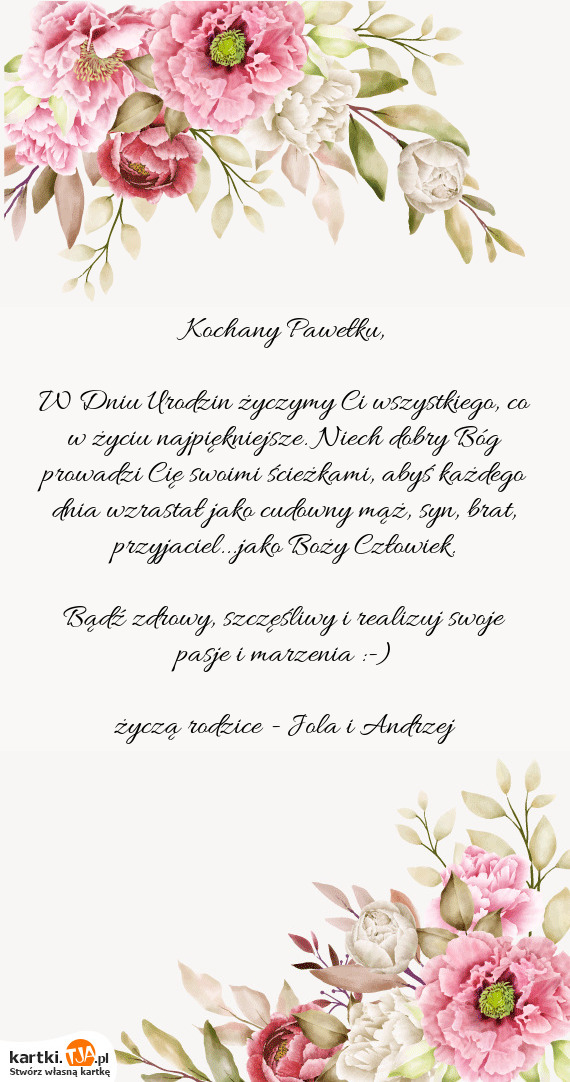 Kochany Pawełku,
W Dniu Urodzin życzymy Ci wszystkiego, co
w życiu najpiękniejsze. Niech dobry Bóg
prowadzi Cię swoimi ścieżkami, abyś każdego
dnia wzrastał jako cudowny mąż, syn, brat,
przyjaciel...jako Boży Człowiek.
Bądź zdrowy, szczęśliwy i realizuj swoje
pasje i marzenia :-)
życzą rodzice - Jola i Andrzej
kartki.TJA.pl
Stwórz własną kartkę